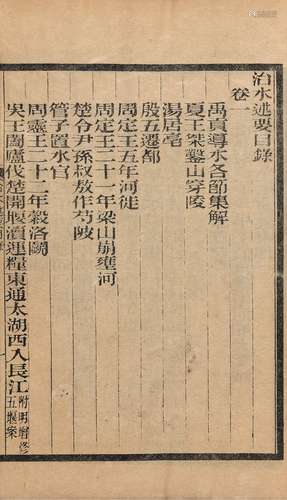 治水述要目錄
卷一
禹貢導水各節集解
夏王桀鑿山穿陵
湯居亳
殷五遷都
周定王五年河徙
周定王二十一年梁山崩壅河
楚令尹孫叔敖作芍陂
管子置水官
周靈王二十二年穀洛鬭
吳王闔廬伐楚開堰瀆運糧東通太湖西入長江附明
五堰案